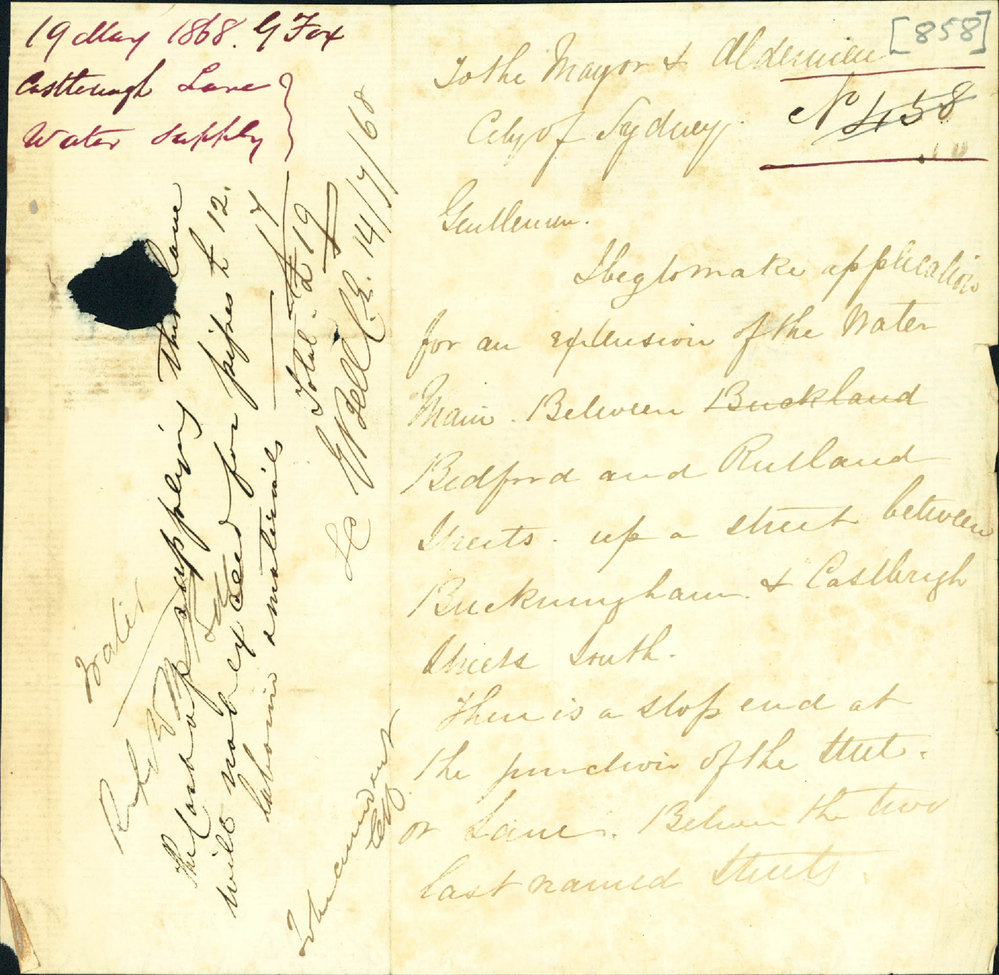 19 May 1868. G Fox
Castlereagh Lane
Water Supply
[858]
No 458
To the Mayor & Aldermen
City of Sydney.
Gentlemen.
I beg to make application
for an extension of the Water
Main. Between Buckland
Bedford and Rutland
Streets. up a street between
Buckningham & Castlereigh
Streets South.
There is a stop end at
the junction of the Street.
or Lane. Between the two
last named Streets.
Water
The Cost of supplying this lane
will not exceed for pipes £ 12.
Labour & materials 7
Total £ 19
E Bell C.E. 14/7/68